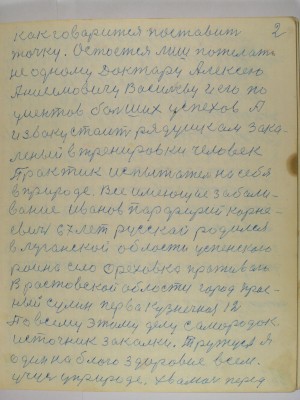 2
как говорится поставит
точку. Остается лиш пожелать
не одному Доктару Алексею
Анисимовичу Васильеву и его по
циентов больших успехов А
извокустоит рядуш кам зака-
лёный в тренировки человек
Практик испытател на себя
в природе. Все имеющие забале-
вание иванов Парфирий корне-
евич 67 лет русскай родился
в луганской области успенскаго
раина село Ореховка праживат
в растовской области город крас-
ный сулин перва кузнечная 12
По всему этому делу самородок
источник закалки. Тружуся я
один на благо здоровие всем.
учус у природе. хвамаг перед